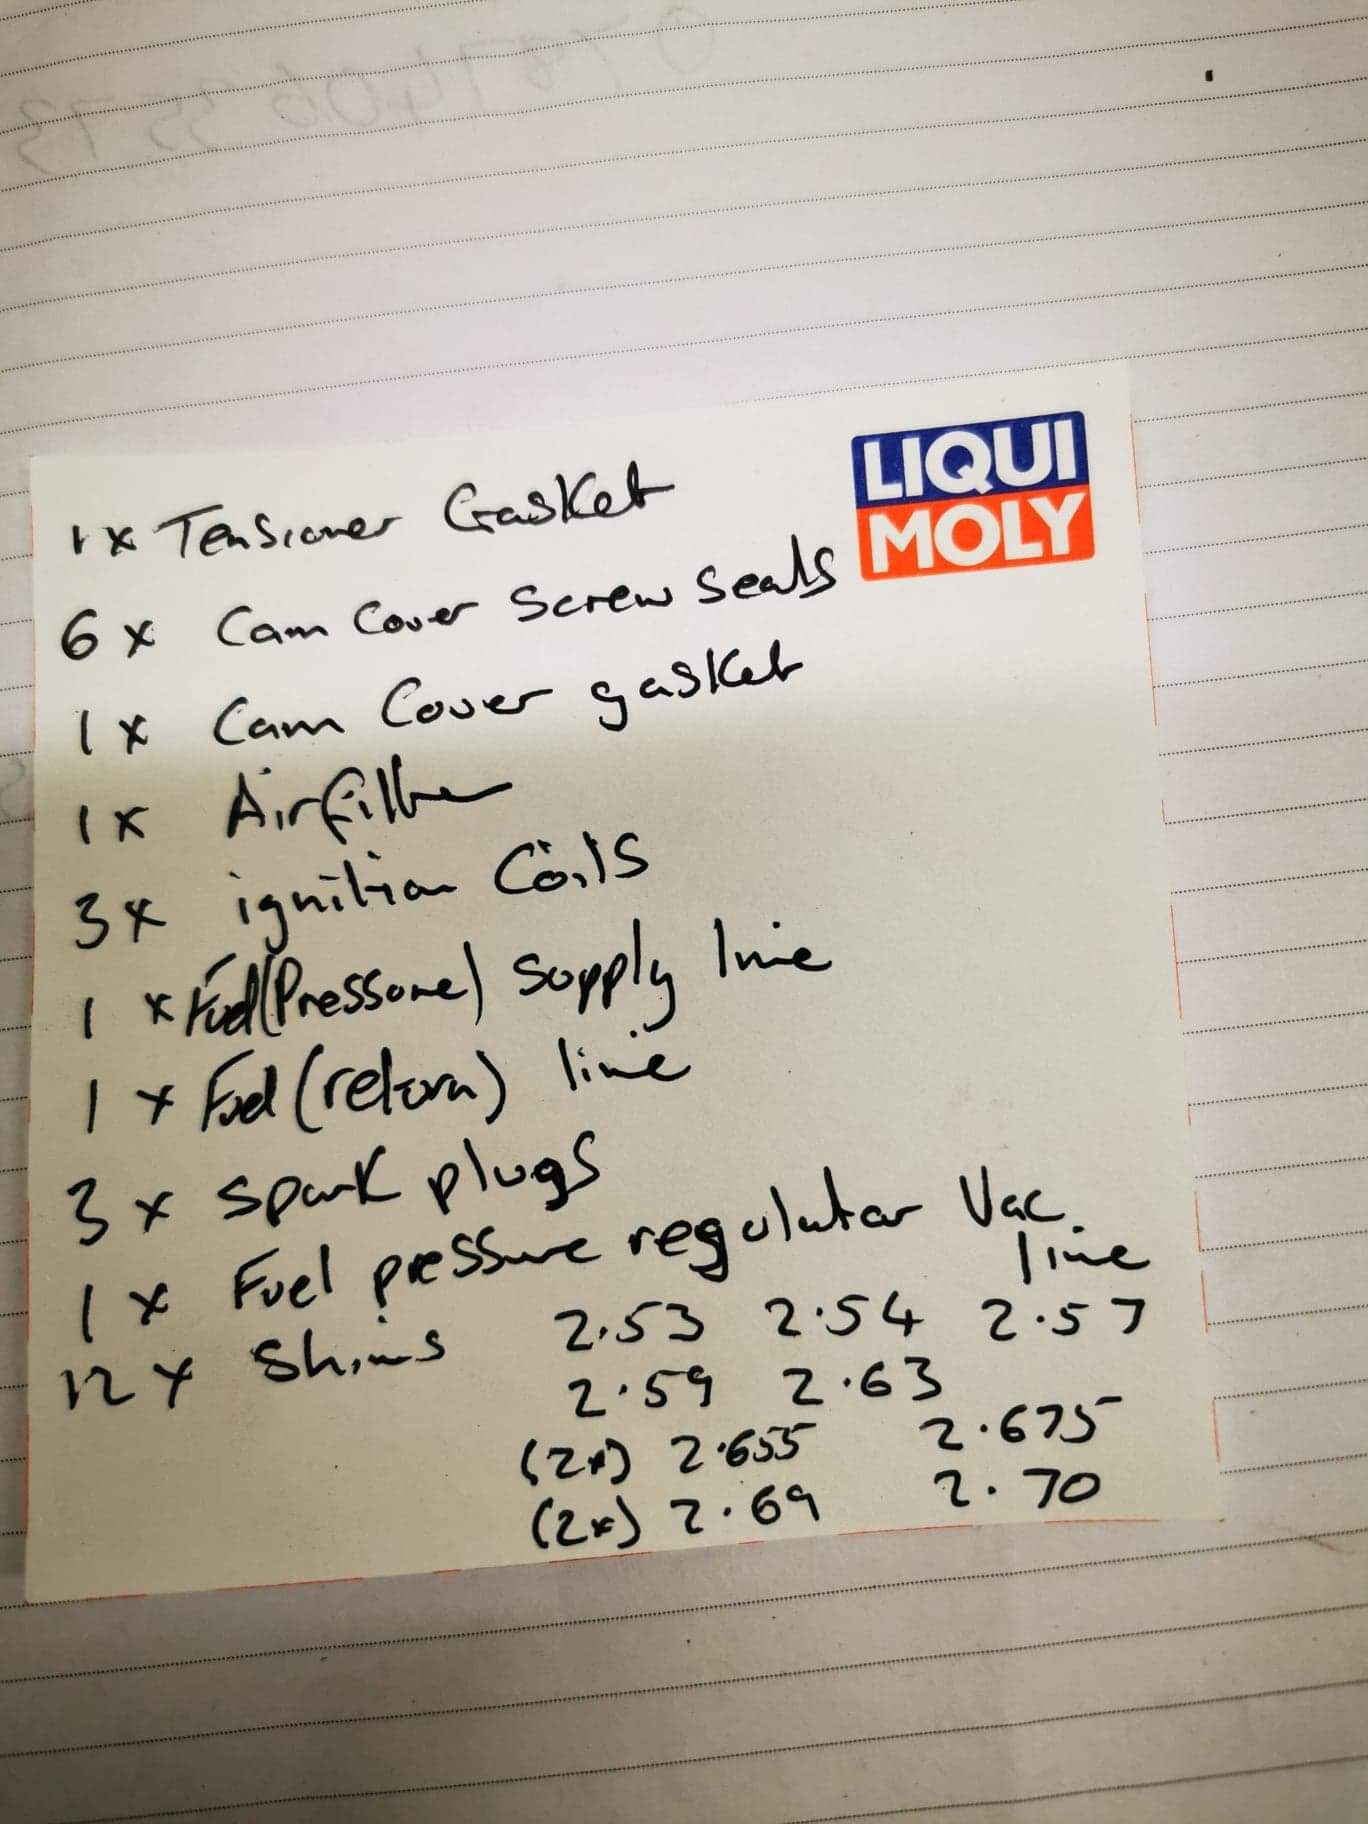 LIQUI
MOLY
1x Tensioner Gasket
6x Cam Cover Screw Seals
1x Cam Cover gasket
1x Airfilter
3x ignition Coils
1 x Fuel (Pressure) Supply line
1 x Fuel (return) line
3 x spark plugs
1 x Fuel pressure regulator Vac.
line
12 x Shims 2.53 2.54 2.57
2.59 2.63
(2x) 2.655 2.675
(2x) 2.69 2.70